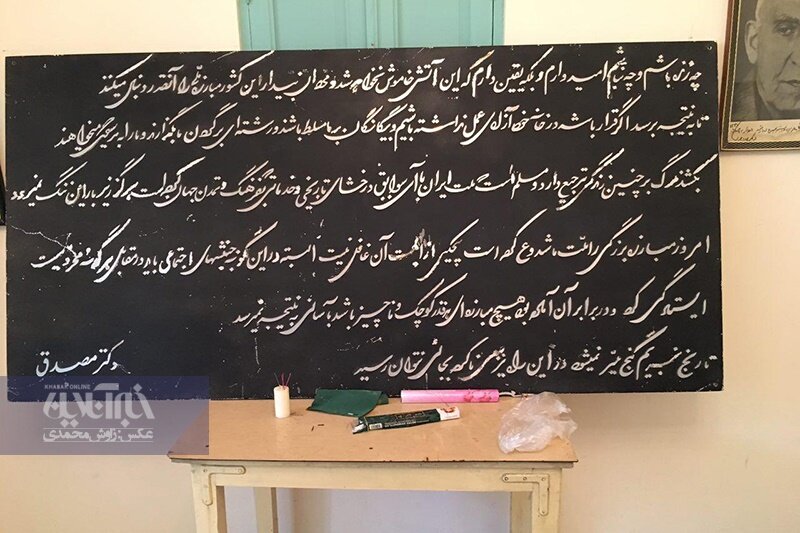 چه زنده باشم و چه نباشم امیدوارم و بلکه یقین دارم که این آتش خاموش نخواهد شد و مردان بیدار این کشور مبارزه ملی را آنقدر دنبال میکنند
تا به نتیجه برسد اگر قرار باشد در خانه خود آزادی عمل نداشته باشیم و بیگانگان بر ما مسلط باشند و رشته‌ای بر گردن ما بگذارند و ما را به هر سوی که میخواهند
بکشند مرگ بر چنین زندگی ترجیح دارد و مسلم است که ملت ایران با آن سوابق درخشان تاریخی و خدماتی که به فرهنگ و تمدن جهان کرده است هرگز زیر بار این ننگ نمیرود
امروز مبارزه بزرگی را ملت ما شروع کرده است که هیچکس از اهمیت آن غافل نیست البته در این گونه جنبشهای اجتماعی باید در مقابل هرگونه محرومیت
ایستادگی کرد و در برابر آن آماده بود هیچ مبارزه‌ای هرقدر کوچک و ناچیز باشد به آسانی به نتیجه نمیرسد
تا رنج نبریم گنج میسر نمیشود در این راه بی رنج بجائی نتوان رسید
دکتر مصدق
KHABAR ONLINE
خبرآنلاین
عکس: زاوش محمدی